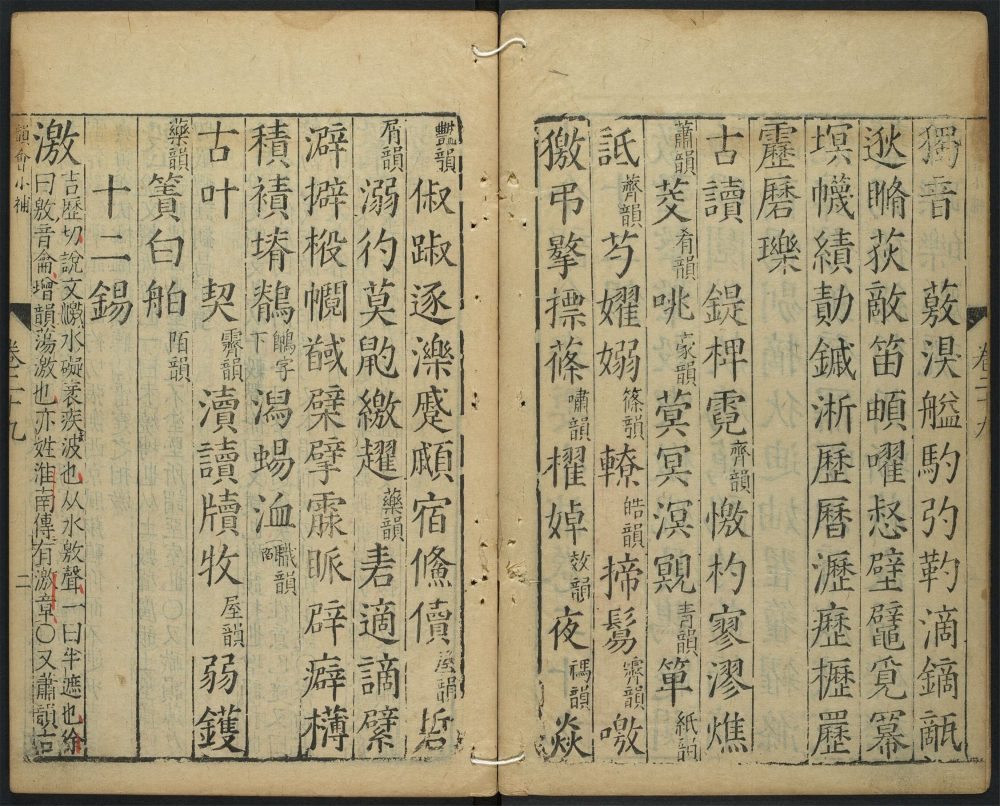 獨音 藙湨艗馰彴靮滴鏑甋
逖䠷荻敵笛頔嚁惄壁鼊覓冪
塓幭績勣鏚淅歷曆瀝癧櫪䍥
靂磿瓅
古讀 鍉椑霓齊韻憿杓寥漻燋
蕭韻芰肴韻咷豪韻蓂冥溟覭青韻箄紙韻
詆薺韻芍嬥嫋篠韻轑皓韻揥鬄霽韻噭
獥弔擎摽蓧嘯韻櫂婥效韻夜禡韻焱
豔韻俶踧逐濼蹙顣宿儵儥屋韻哲
屑韻溺彴莫鼩繳趯藥韻砉適謫糪
澼擗椴幭䤋檗擘霢眽辟癖欂
積襀塉鶺下鵨字潟蜴洫職韻陌
古叶 契霽韻瀆讀牘牧屋韻弱鑊
藥韻簀白舶陌韻
十二錫
激吉歷切說文激水礙衺疾波也从水敫聲一曰半遮也徐
曰敫音龠增韻蕩激也亦姓淮南傳有激章〇又蕭韻吉
韻會小補 卷二十九 二
卷二十九